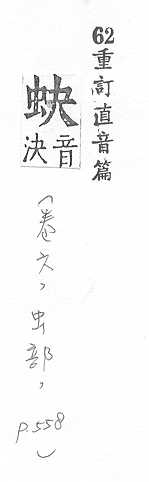 62重訂直音篇
蚗
音决
(卷六,虫部,p.558)